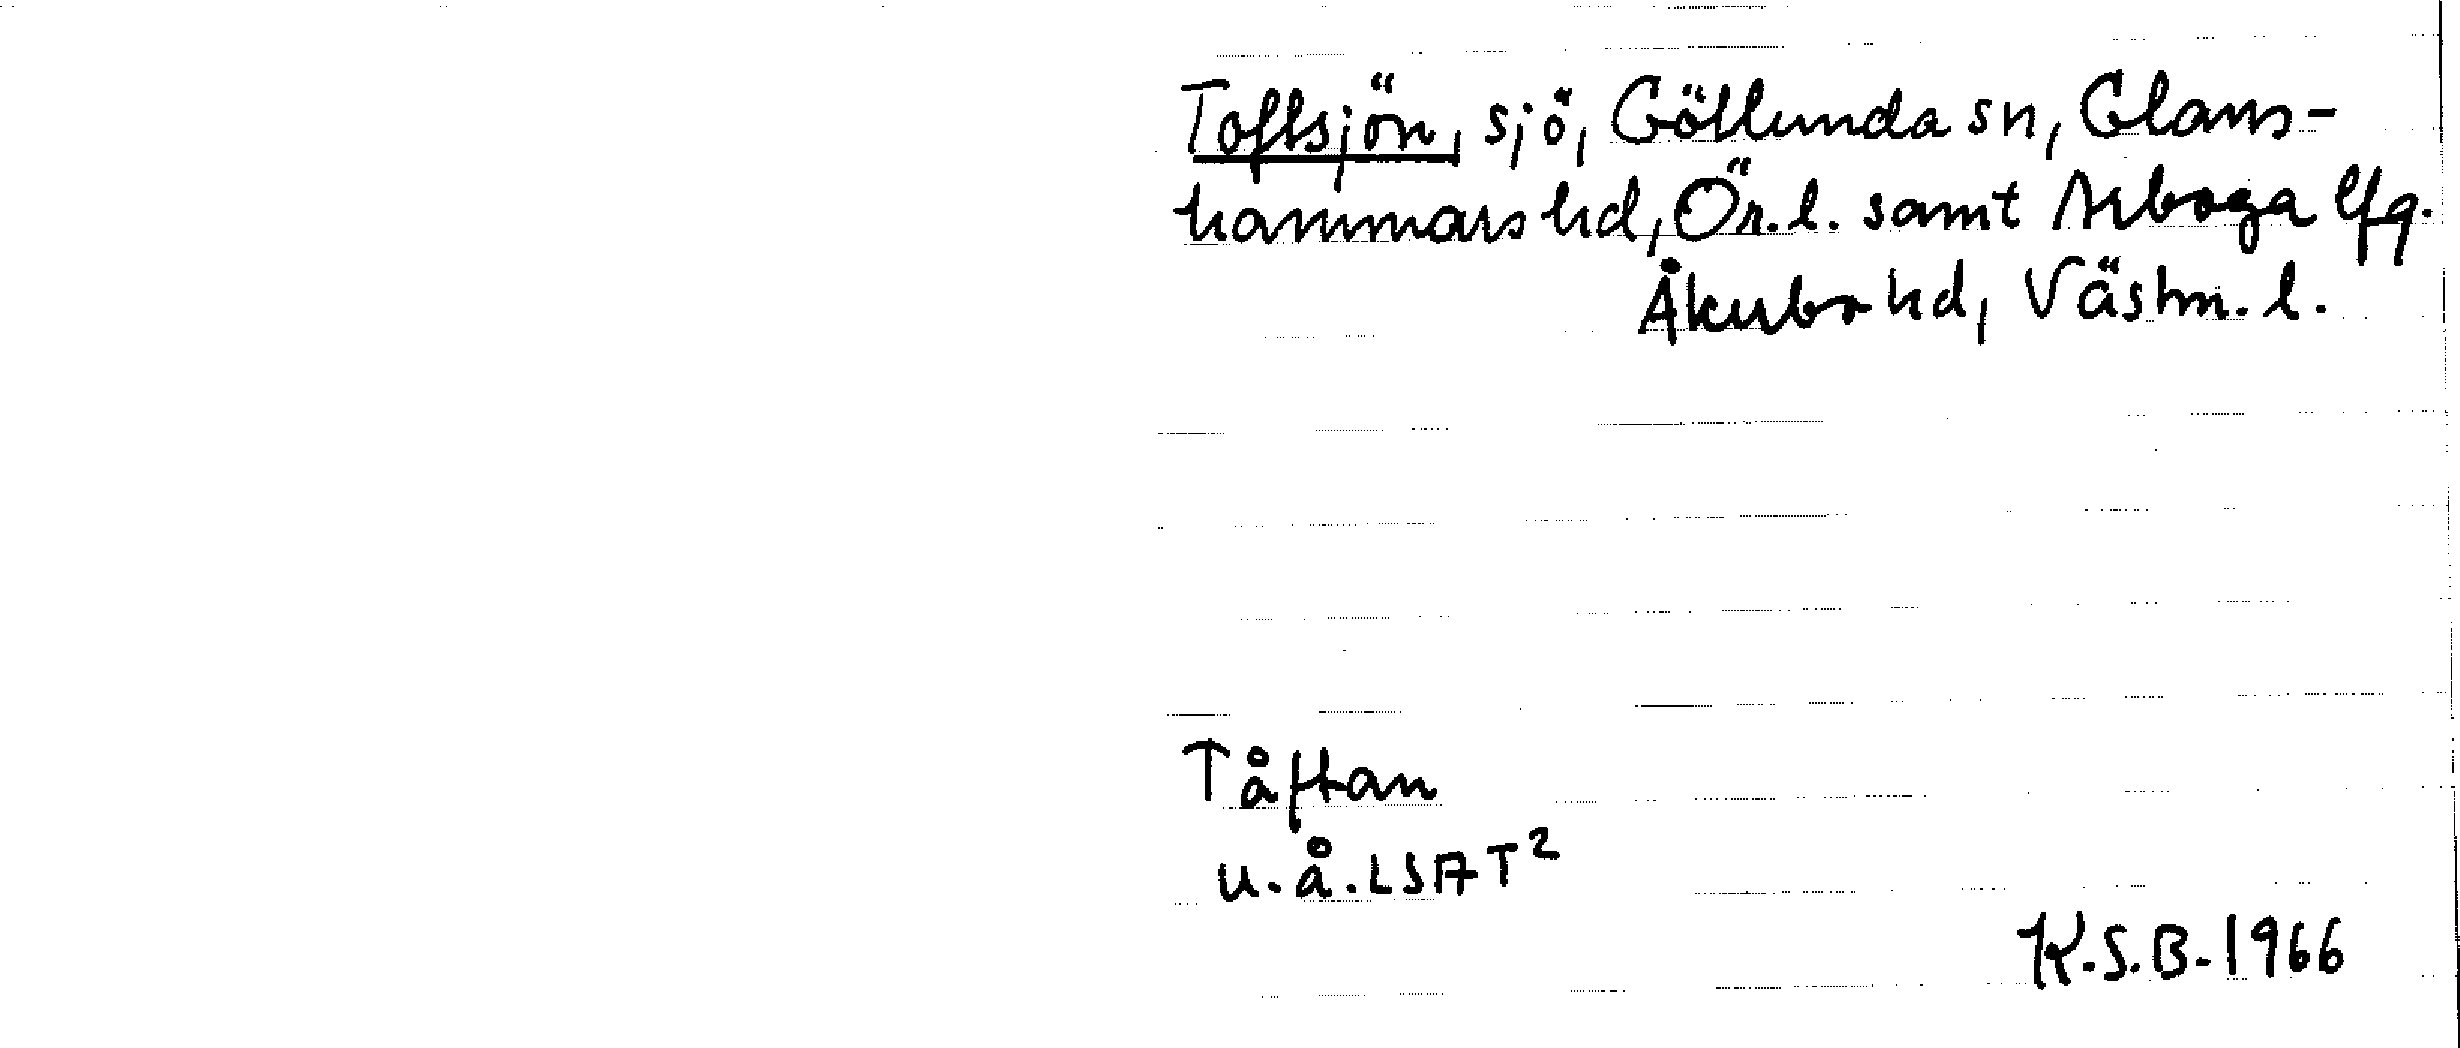 Toftsjön, sjö, Götlunda sn, Glans-
hammars hd, Ör. l. samt Arboga lfg.
Åkerbo hd, Västm. l.
Tåftan
u. å. LSA T²
K.S.B. 1966